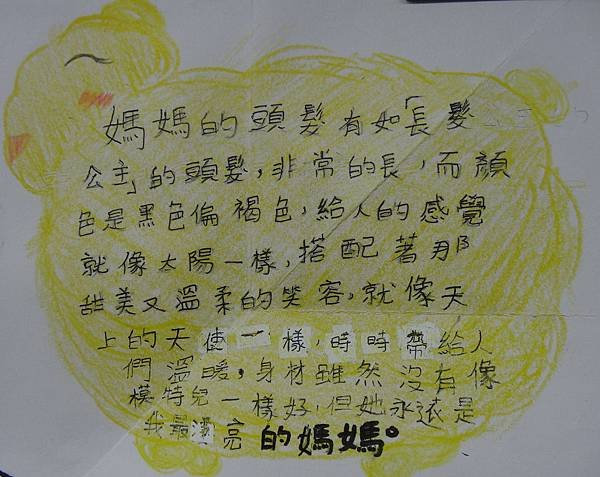 媽媽的頭髮有如「長髮
公主」的頭髮,非常的長,而顏
色是黑色偏褐色,給人的感覺
就像太陽一樣,搭配著那
甜美又溫柔的笑容,就像天
上的天使一樣,時時帶給人
們溫暖,身材雖然沒有像
模特兒一樣好,但她永遠是
我最漂亮的媽媽。